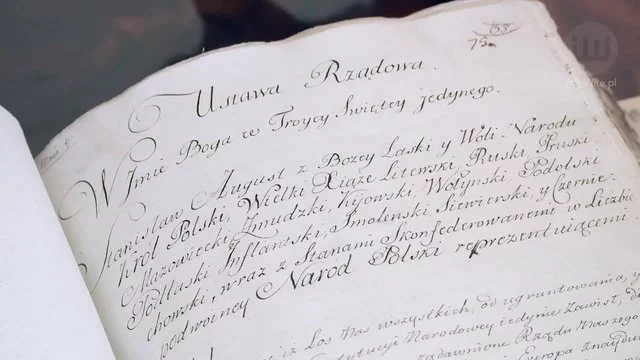 153
75a
Ustawa Rządowa.
W Imie Boga w Troycy Swiętey jedynego.
Stanisław August z Bozey Łaski y Woli Narodu
Krol Polski, Wielki Xiąże Litewski, Ruski, Pruski
Mazowiecki, Zmudzki, Kijowski, Wołynski, Podolski
Podlaski, Inflantski, Smolenski, Siewierski, y Czernie-
chowski, wraz z Stanami Skonfederowanemi w Liczbie
podwoiney Narod Polski reprezentuiącemi.
iz Los Nas wszystkich, od ugruntowania, y
tucyi Narodowey jedynie Zawisł, dł
zadawnione Rządu Naszego
Europa znayduie